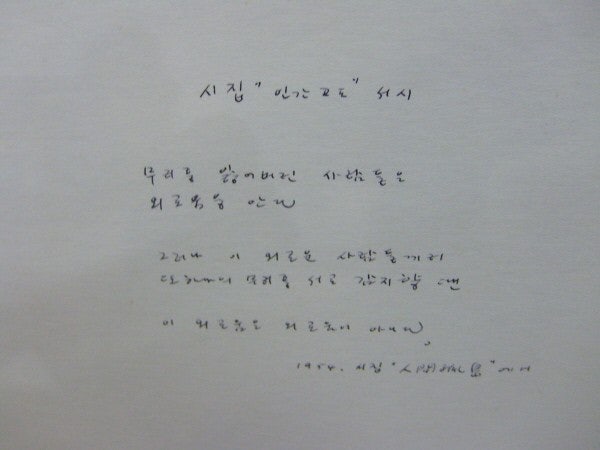 시집 "인간고도" 서시
무리를 잃어버린 사람들은
외로움을 안다
그러나 이 외로운 사람들끼리
또하나의 무리를 서로 감지할 땐
이 외로움도 외로움이 아니다.
1954. 시집 "人間孤島" 에서